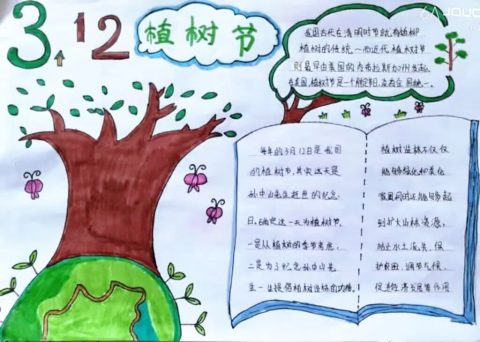 3.12
植树节
我国古代在清明时节就有插柳
植树的传统，而近代植树节
则最早由美国的内布拉斯加州发起。
在美国，植树节是一个州定节日，没有全国统一。
每年的3月12日是我国
的植树节，其实这天是
孙中山先生逝世的纪念
日。确定这一天为植树节，
一是从植树的季节考虑；
二是为了纪念孙中山先
生一生提倡植树造林的功绩。
植树造林不仅仅
能够绿化和美化
家园同时还能够起
到扩大山林资源，
防止水土流失，保
护农田，调节气候，
促进经济发展等作用